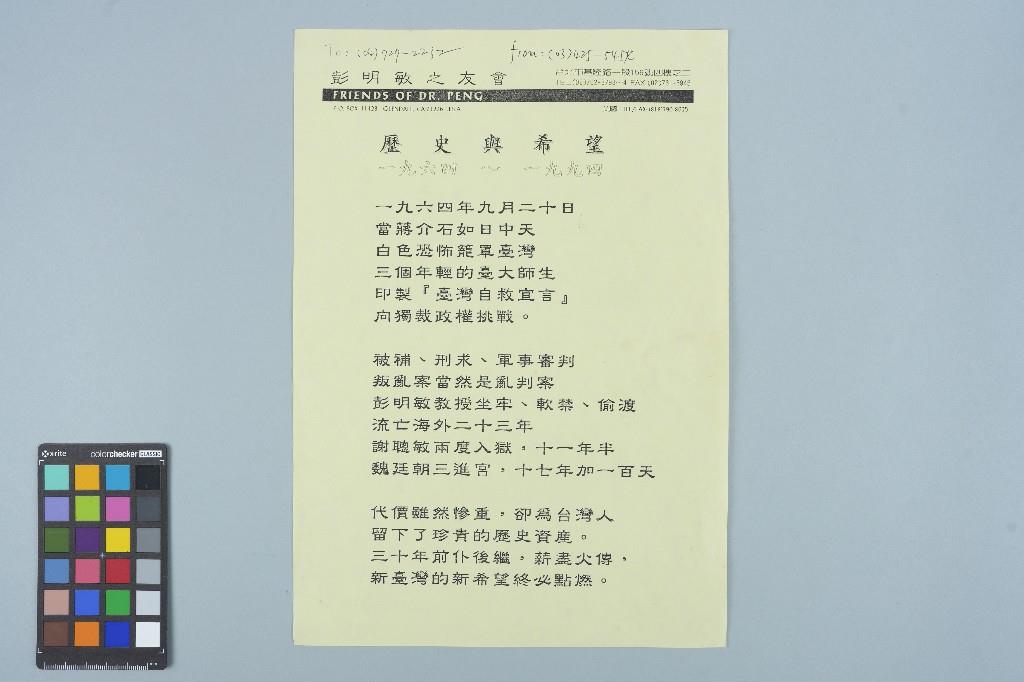 彭明敏之友會
FRIENDS OF DR. PENG
歷史與希望
一九六四 ~ 一九九四
一九六四年九月二十日
當蔣介石如日中天
白色恐怖籠罩臺灣
三個年輕的臺大師生
印製『臺灣自救宣言』
向獨裁政權挑戰。
被補、刑求、軍事審判
叛亂案當然是亂判案
彭明敏教授坐牢、軟禁、偷渡
流亡海外二十三年
謝聰敏兩度入獄，十一年半
魏廷朝三進宮，十七年加一百天
代價雖然慘重，卻為台灣人
留下了珍貴的歷史資產。
三十年前仆後繼，薪盡火傳，
新臺灣的新希望終必點燃。
x-rite colorchecker CLASSIC